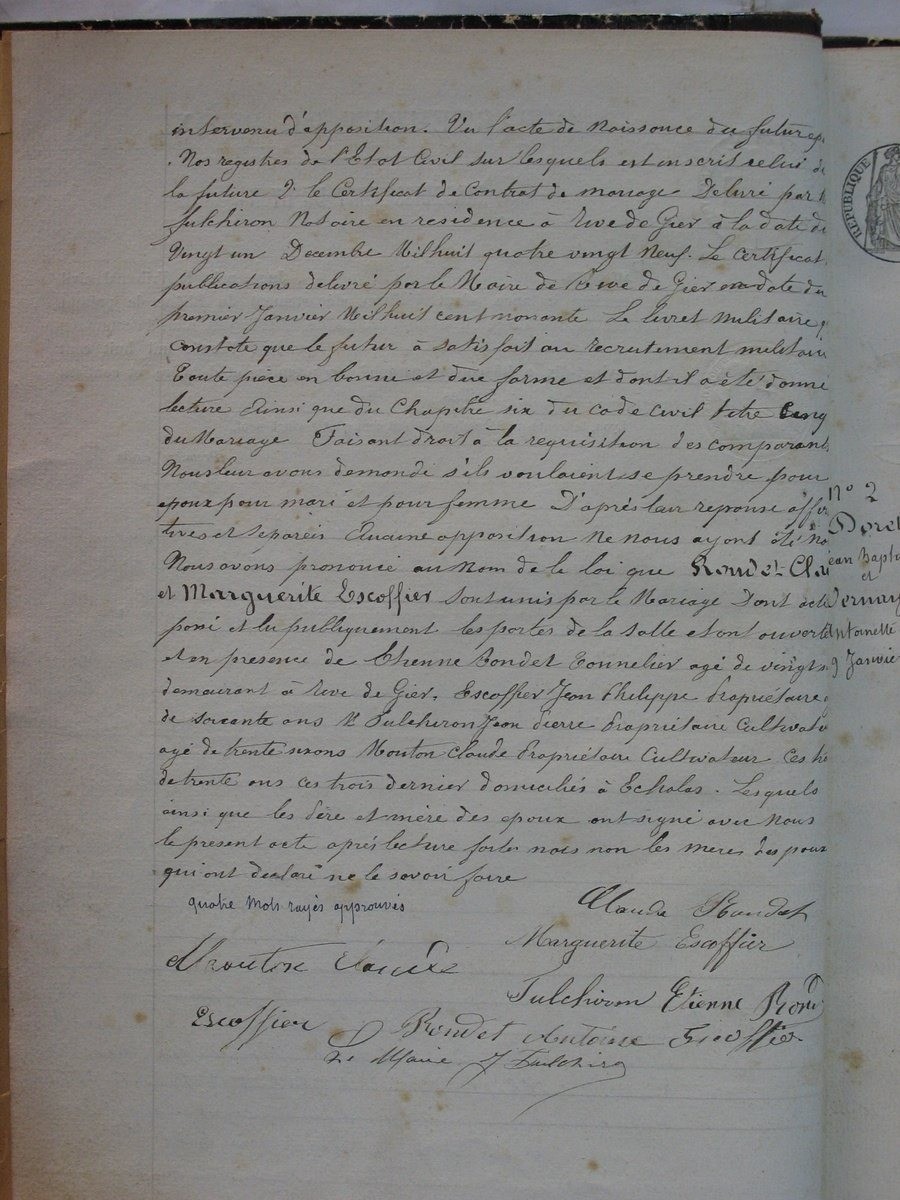 intervenu d'apposition. Vu l'acte de Naissance du future
. Nos registres de l'Etat Civil sur lesquels est inscrit celui de
la future 2° le Certificat de Contrat de mariage Delivré par
fulchiron Notaire en residence à Rive de Gier à la date du
Vingt un Decembre Milhuit quatre vingt Neuf. Le Certificat
publications delivré par le Maire de Rive de Gier en date du
premier Janvier Milhuit cent nonante Le livret Militaire
constate que le futur à satisfait au recrutement militaire
Toute pièce en bonne et due forme et dont il a été donné
lecture Ainsi que du Chapitre six du code civil titre Cinq
du Mariage Faisant droit à la requisition des comparants
Nous leur avons demandé s'ils voulaient se prendre pour
epoux pour mari et pour femme D'après leur reponse affir
tives et separeis Aucune opposition Ne nous ayant été no
Nous avons prononcé au Nom de le loi que Rondet Clau
et Marguerite Escoffier sont unis par le Mariage Dont acte
posé et lu publiquement les portes de la salle etant ouverte
et en presence de Etienne Rondet Tonnelier agé de vingt
demeurant à Rive de Gier, Escoffier Jean Philippe Propriétaire
de soixante ans Fulchiron Jean Pierre Propriétaire Cultivateu
agé de trente six ans Mouton Claude Propriétaire Cultivateur
de trente ans ces trois dernier domiciliés à Echalas. Lesquels
ainsi que les Père et mère des epoux ont signé avec Nous
le present acte après lecture faite mais non les meres des poux
qui ont declaré ne le savoir faire
quatre mots rayés approuvés
Claude Rondet
Marguerite Escoffier
Mouton Claude
Fulchiron Etienne Rond
Escoffier Rondet Antoine Escoffier
Le Maire J Fulchiron
REPUBLIQUE
N° 2
Doret
ean Bapti
et
Antoinette
9 Janvie